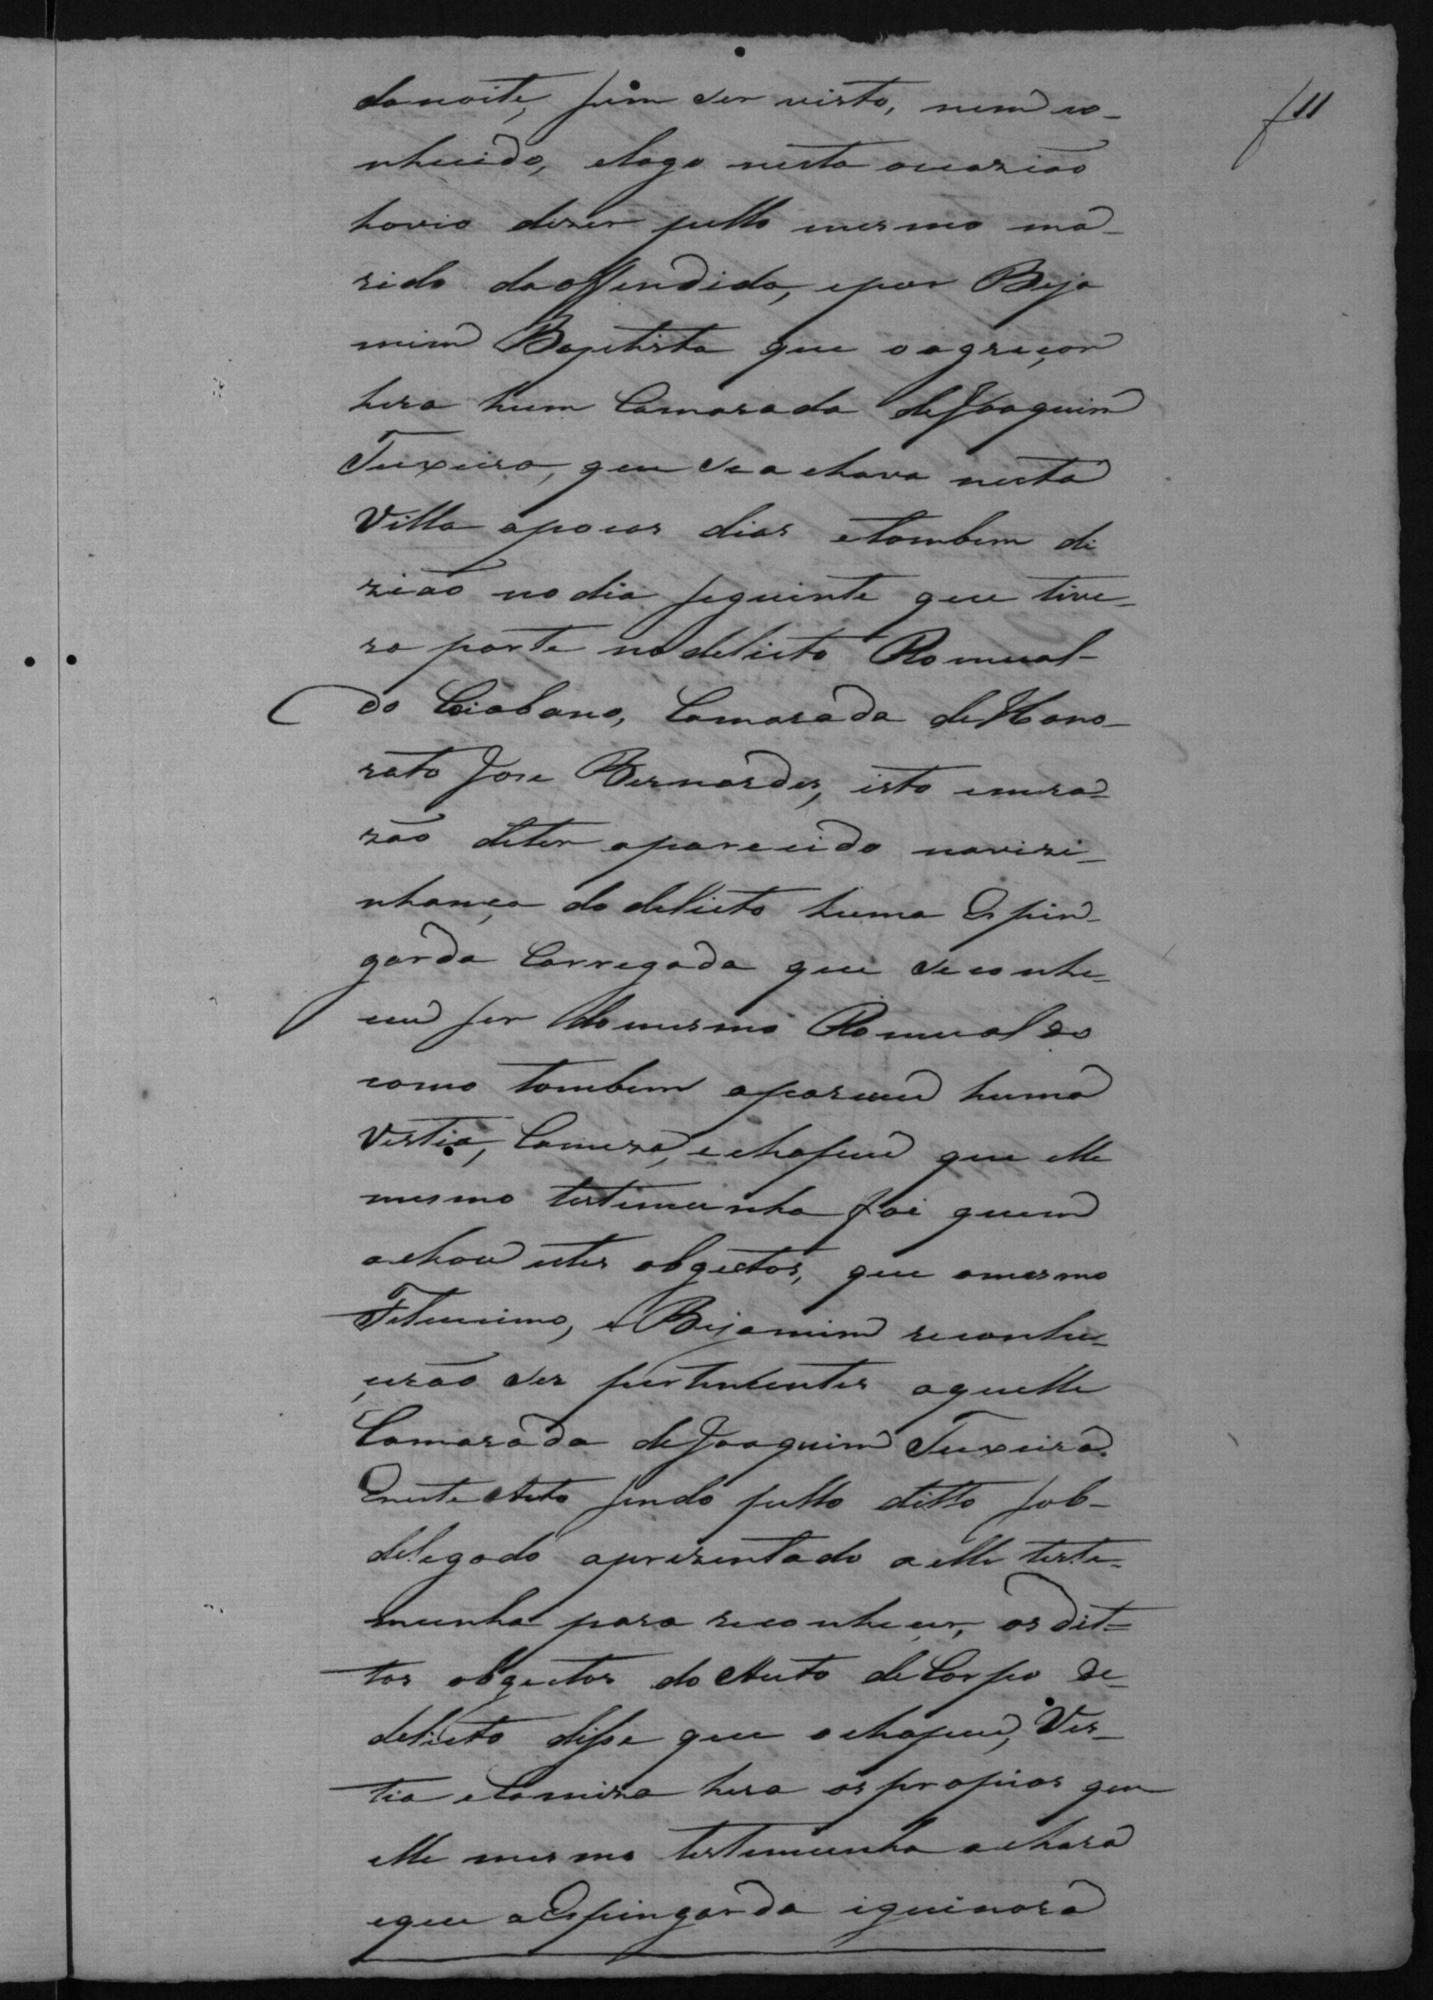 f 11
danoite, sem ser visto, nem co-
nhecido, elogo nesta occazião
havia dizer pello mesmo ma-
rido daoffendida, epor Beja
mim Baptista que oagreçor
hera hum Camarada deJoaquim
Teixeira, que sea chava nesta
Villa apocos dias etambem di
zião nodia seguinte que tive-
ra parte nodelicto Romual-
do Ciabano, Camarada deHono-
rato Jose Bernardes, isto emra-
zão deter aparecido navizi-
nhança dodelicto huma Espin-
garda Carregada que seconhe-
ceu ser domesmo Romualdo
como tambem apareceu huma
Vestia, Camiza, echapeu que elle
mesmo testimunha foi quem
achou estes obgectos, que omesmo
Felicimo, e Bejamim reconhe-
çerão ser pertencentes aquelle
Camarada deJoaquim Teixeira.
Eneste Acto sendo pello ditto sob-
delegado aprezentado aelle teste-
munha para reconheçer, os dit-
tos obgectos do Auto deCorpo de-
delicto disse que ochapeu, Ves-
tia eCamiza hera os propios que
elle mesmo testemunha achara
eque aEspingarda iguinora